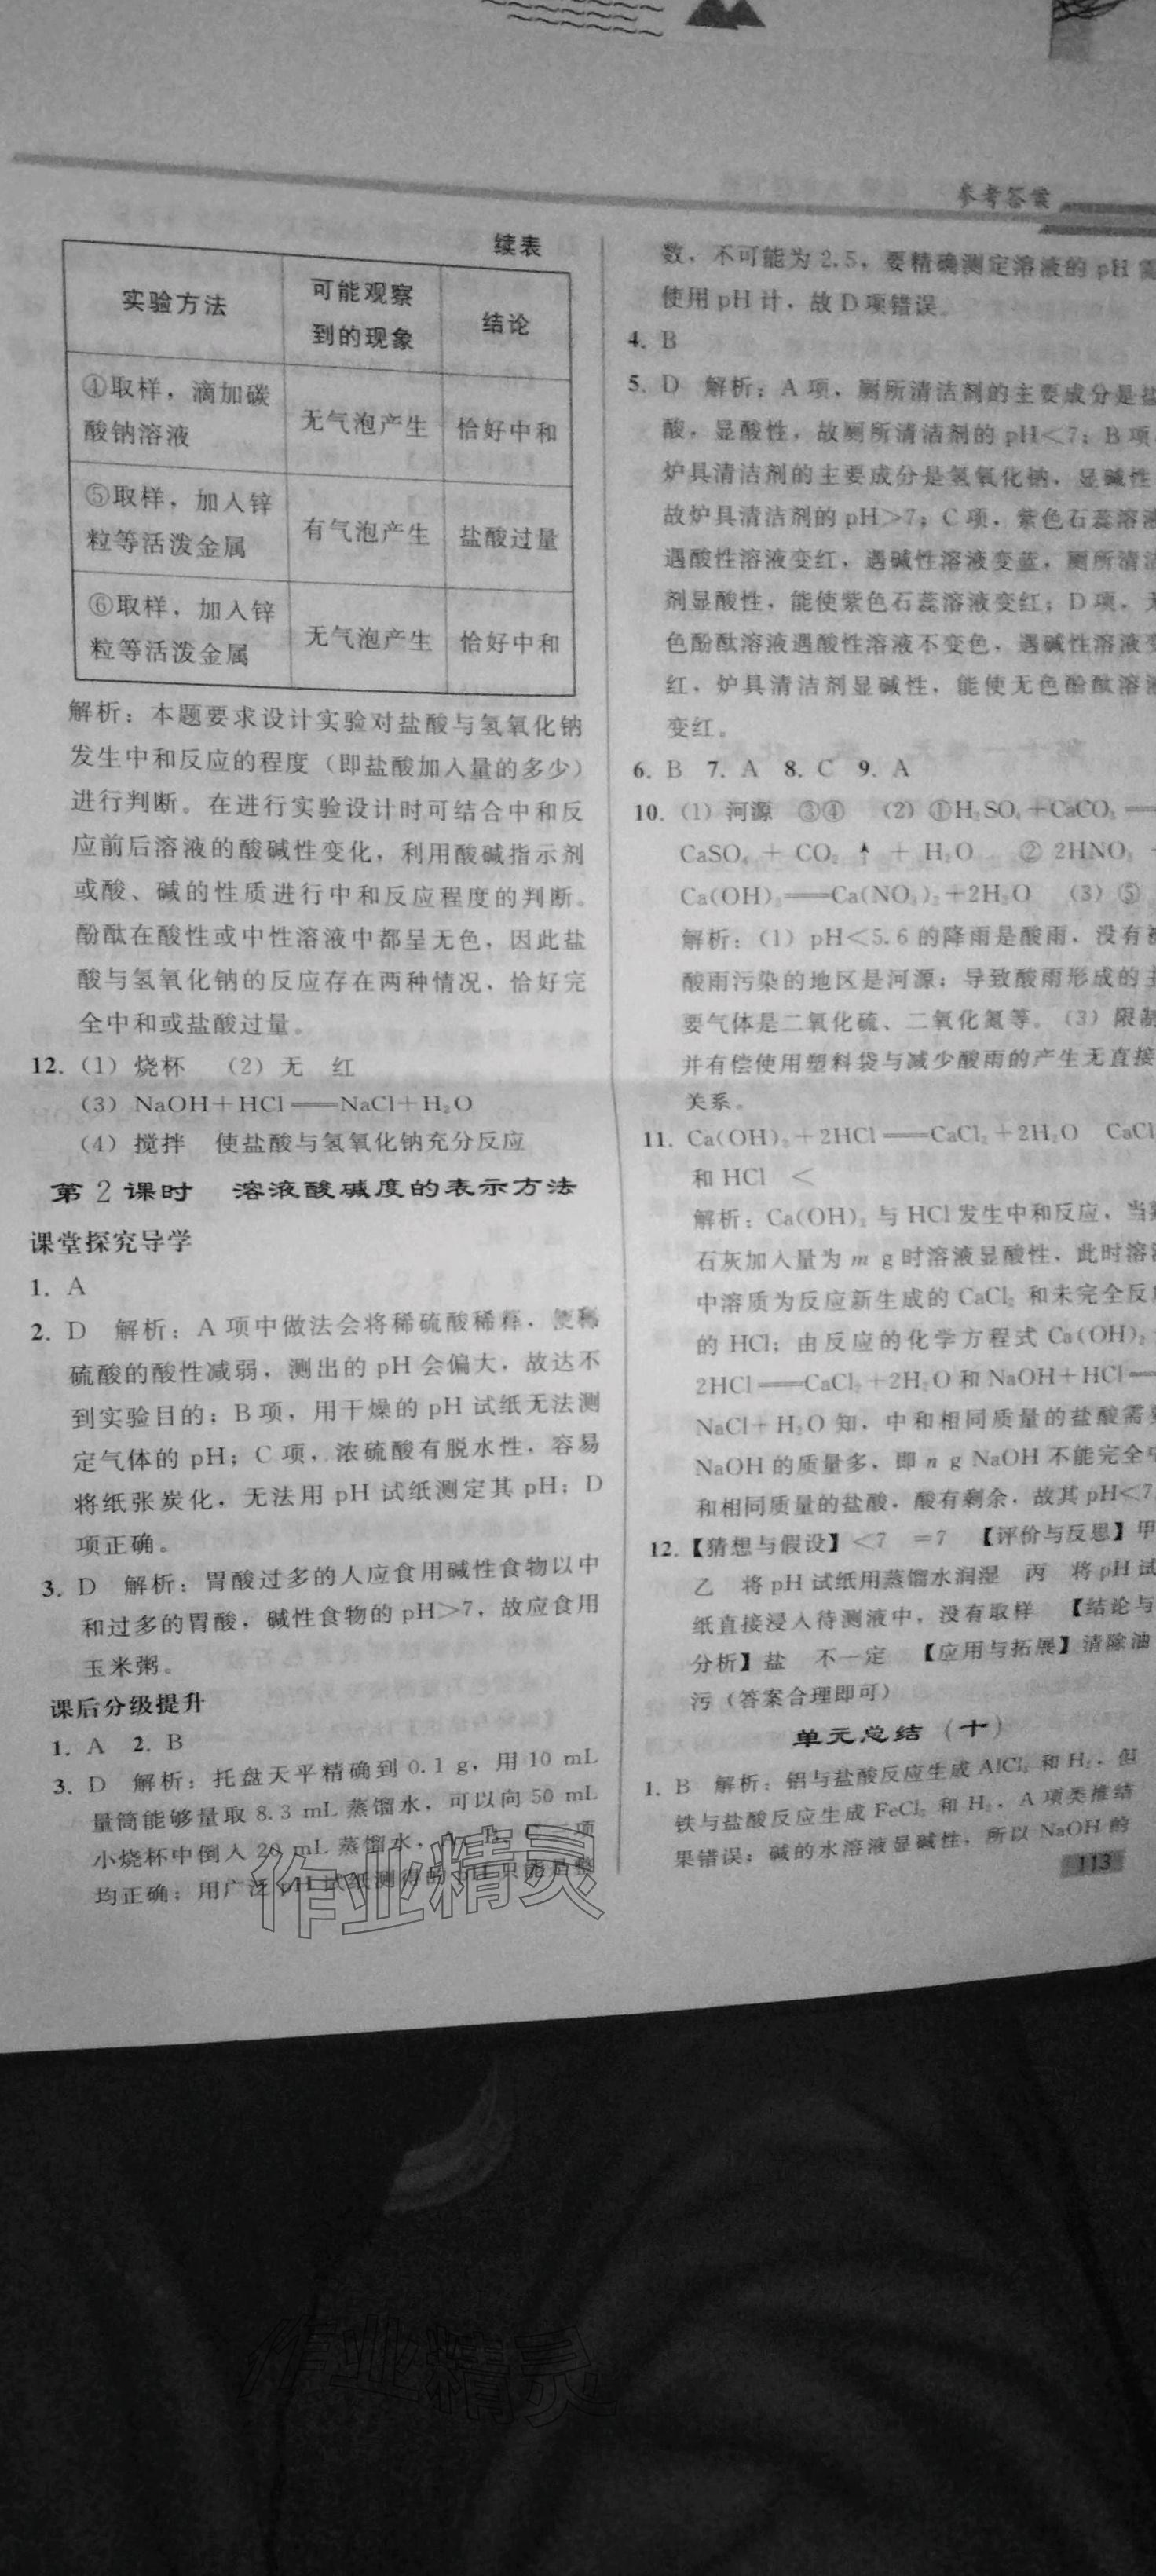 参考答案
续表
实验方法 可能观察到的现象 结论
④取样，滴加碳酸钠溶液 无气泡产生 恰好中和
⑤取样，加入锌粒等活泼金属 有气泡产生 盐酸过量
⑥取样，加入锌粒等活泼金属 无气泡产生 恰好中和
解析：本题要求设计实验对盐酸与氢氧化钠
发生中和反应的程度（即盐酸加入量的多少）
进行判断。在进行实验设计时可结合中和反
应前后溶液的酸碱性变化，利用酸碱指示剂
或酸、碱的性质进行中和反应程度的判断。
酚酞在酸性或中性溶液中都呈无色，因此盐
酸与氢氧化钠的反应存在两种情况，恰好完
全中和或盐酸过量。
12. (1) 烧杯 (2) 无 红
(3) NaOH+HCl══NaCl+H₂O
(4) 搅拌 使盐酸与氢氧化钠充分反应
第 2 课时 溶液酸碱度的表示方法
课堂探究导学
1. A
2. D 解析：A 项中做法会将稀硫酸稀释，使稀
硫酸的酸性减弱，测出的 pH 会偏大，故达不
到实验目的；B 项，用干燥的 pH 试纸无法测
定气体的 pH；C 项，浓硫酸有脱水性，容易
将纸张炭化，无法用 pH 试纸测定其 pH；D
项正确。
3. D 解析：胃酸过多的人应食用碱性食物以中
和过多的胃酸，碱性食物的 pH>7，故应食用
玉米粥。
课后分级提升
1. A 2. B
3. D 解析：托盘天平精确到 0.1 g，用 10 mL
量筒能够量取 8.3 mL 蒸馏水，可以向 50 mL
小烧杯中倒入 20 mL 蒸馏水， 项
均正确；用广泛 pH 试纸测 整
数，不可能为 2.5，要精确测定溶液的 pH 需
使用 pH 计，故 D 项错误。
4. B
5. D 解析：A 项，厕所清洁剂的主要成分是盐
酸，显酸性，故厕所清洁剂的 pH<7；B 项，
炉具清洁剂的主要成分是氢氧化钠，显碱性，
故炉具清洁剂的 pH>7；C 项，紫色石蕊溶液
遇酸性溶液变红，遇碱性溶液变蓝，厕所清洁
剂显酸性，能使紫色石蕊溶液变红；D 项，无
色酚酞溶液遇酸性溶液不变色，遇碱性溶液变
红，炉具清洁剂显碱性，能使无色酚酞溶液
变红。
6. B 7. A 8. C 9. A
10. (1) 河源 ③④ (2) ①H₂SO₄+CaCO₃══
CaSO₄ + CO₂ ↑ + H₂O ② 2HNO₃ +
Ca(OH)₂══Ca(NO₃)₂+2H₂O (3) ⑤
解析：(1) pH<5.6 的降雨是酸雨，没有被
酸雨污染的地区是河源；导致酸雨形成的主
要气体是二氧化硫、二氧化氮等。(3) 限制
并有偿使用塑料袋与减少酸雨的产生无直接
关系。
11. Ca(OH)₂+2HCl══CaCl₂+2H₂O CaCl
和 HCl <
解析：Ca(OH)₂ 与 HCl 发生中和反应，当熟
石灰加入量为 m g 时溶液显酸性，此时溶液
中溶质为反应新生成的 CaCl₂ 和未完全反应
的 HCl；由反应的化学方程式 Ca(OH)₂
2HCl══CaCl₂+2H₂O 和 NaOH+HCl══
NaCl+H₂O 知，中和相同质量的盐酸需要
NaOH 的质量多，即 n g NaOH 不能完全中
和相同质量的盐酸，酸有剩余，故其 pH<7
12.【猜想与假设】<7 =7 【评价与反思】甲
乙 将 pH 试纸用蒸馏水润湿 丙 将 pH 试
纸直接浸入待测液中，没有取样 【结论与
分析】盐 不一定 【应用与拓展】清除油
污（答案合理即可）
单元总结（十）
1. B 解析：铝与盐酸反应生成 AlCl₃ 和 H₂，但
铁与盐酸反应生成 FeCl₂ 和 H₂，A 项类推结
果错误；碱的水溶液显碱性，所以 NaOH 的
113
作业精灵
作业精灵